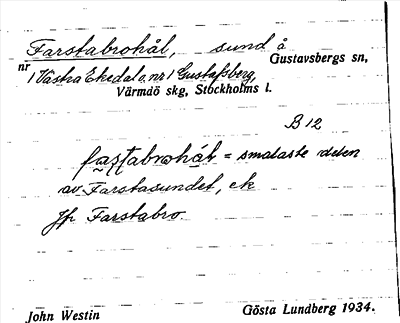 Farstabrohål, sund å
Gustavsbergs sn,
nr 1 Västra Ekedal o nr 1 Gustafsberg,
Värmdö skg, Stockholms l.
B 12
fastabrohål = smalaste delen
av Farstasundet, ek
Jfr Farstabro.
John Westin
Gösta Lundberg 1934.